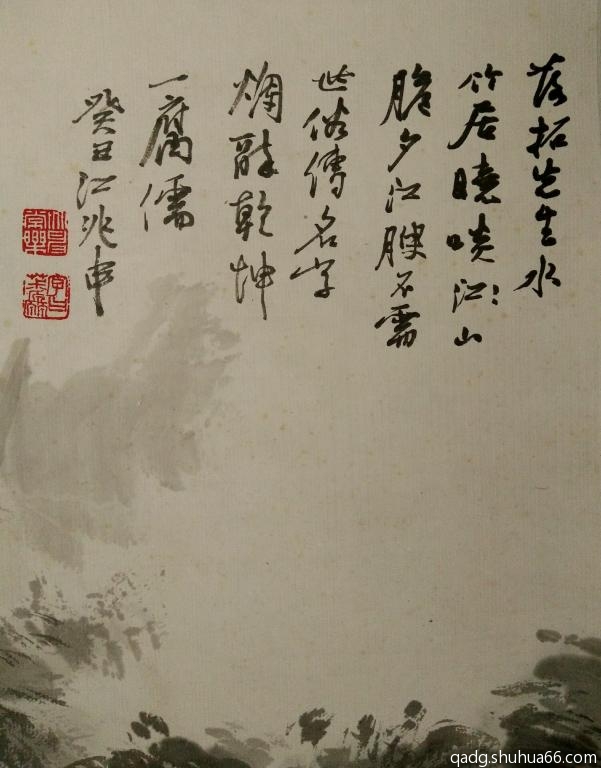 落拓先生水
竹居曉啖江山
脆夕江腴不需
世俗傳名字
爛醉乾坤
一腐儒
癸丑江兆申
qadg.shuhua66.com